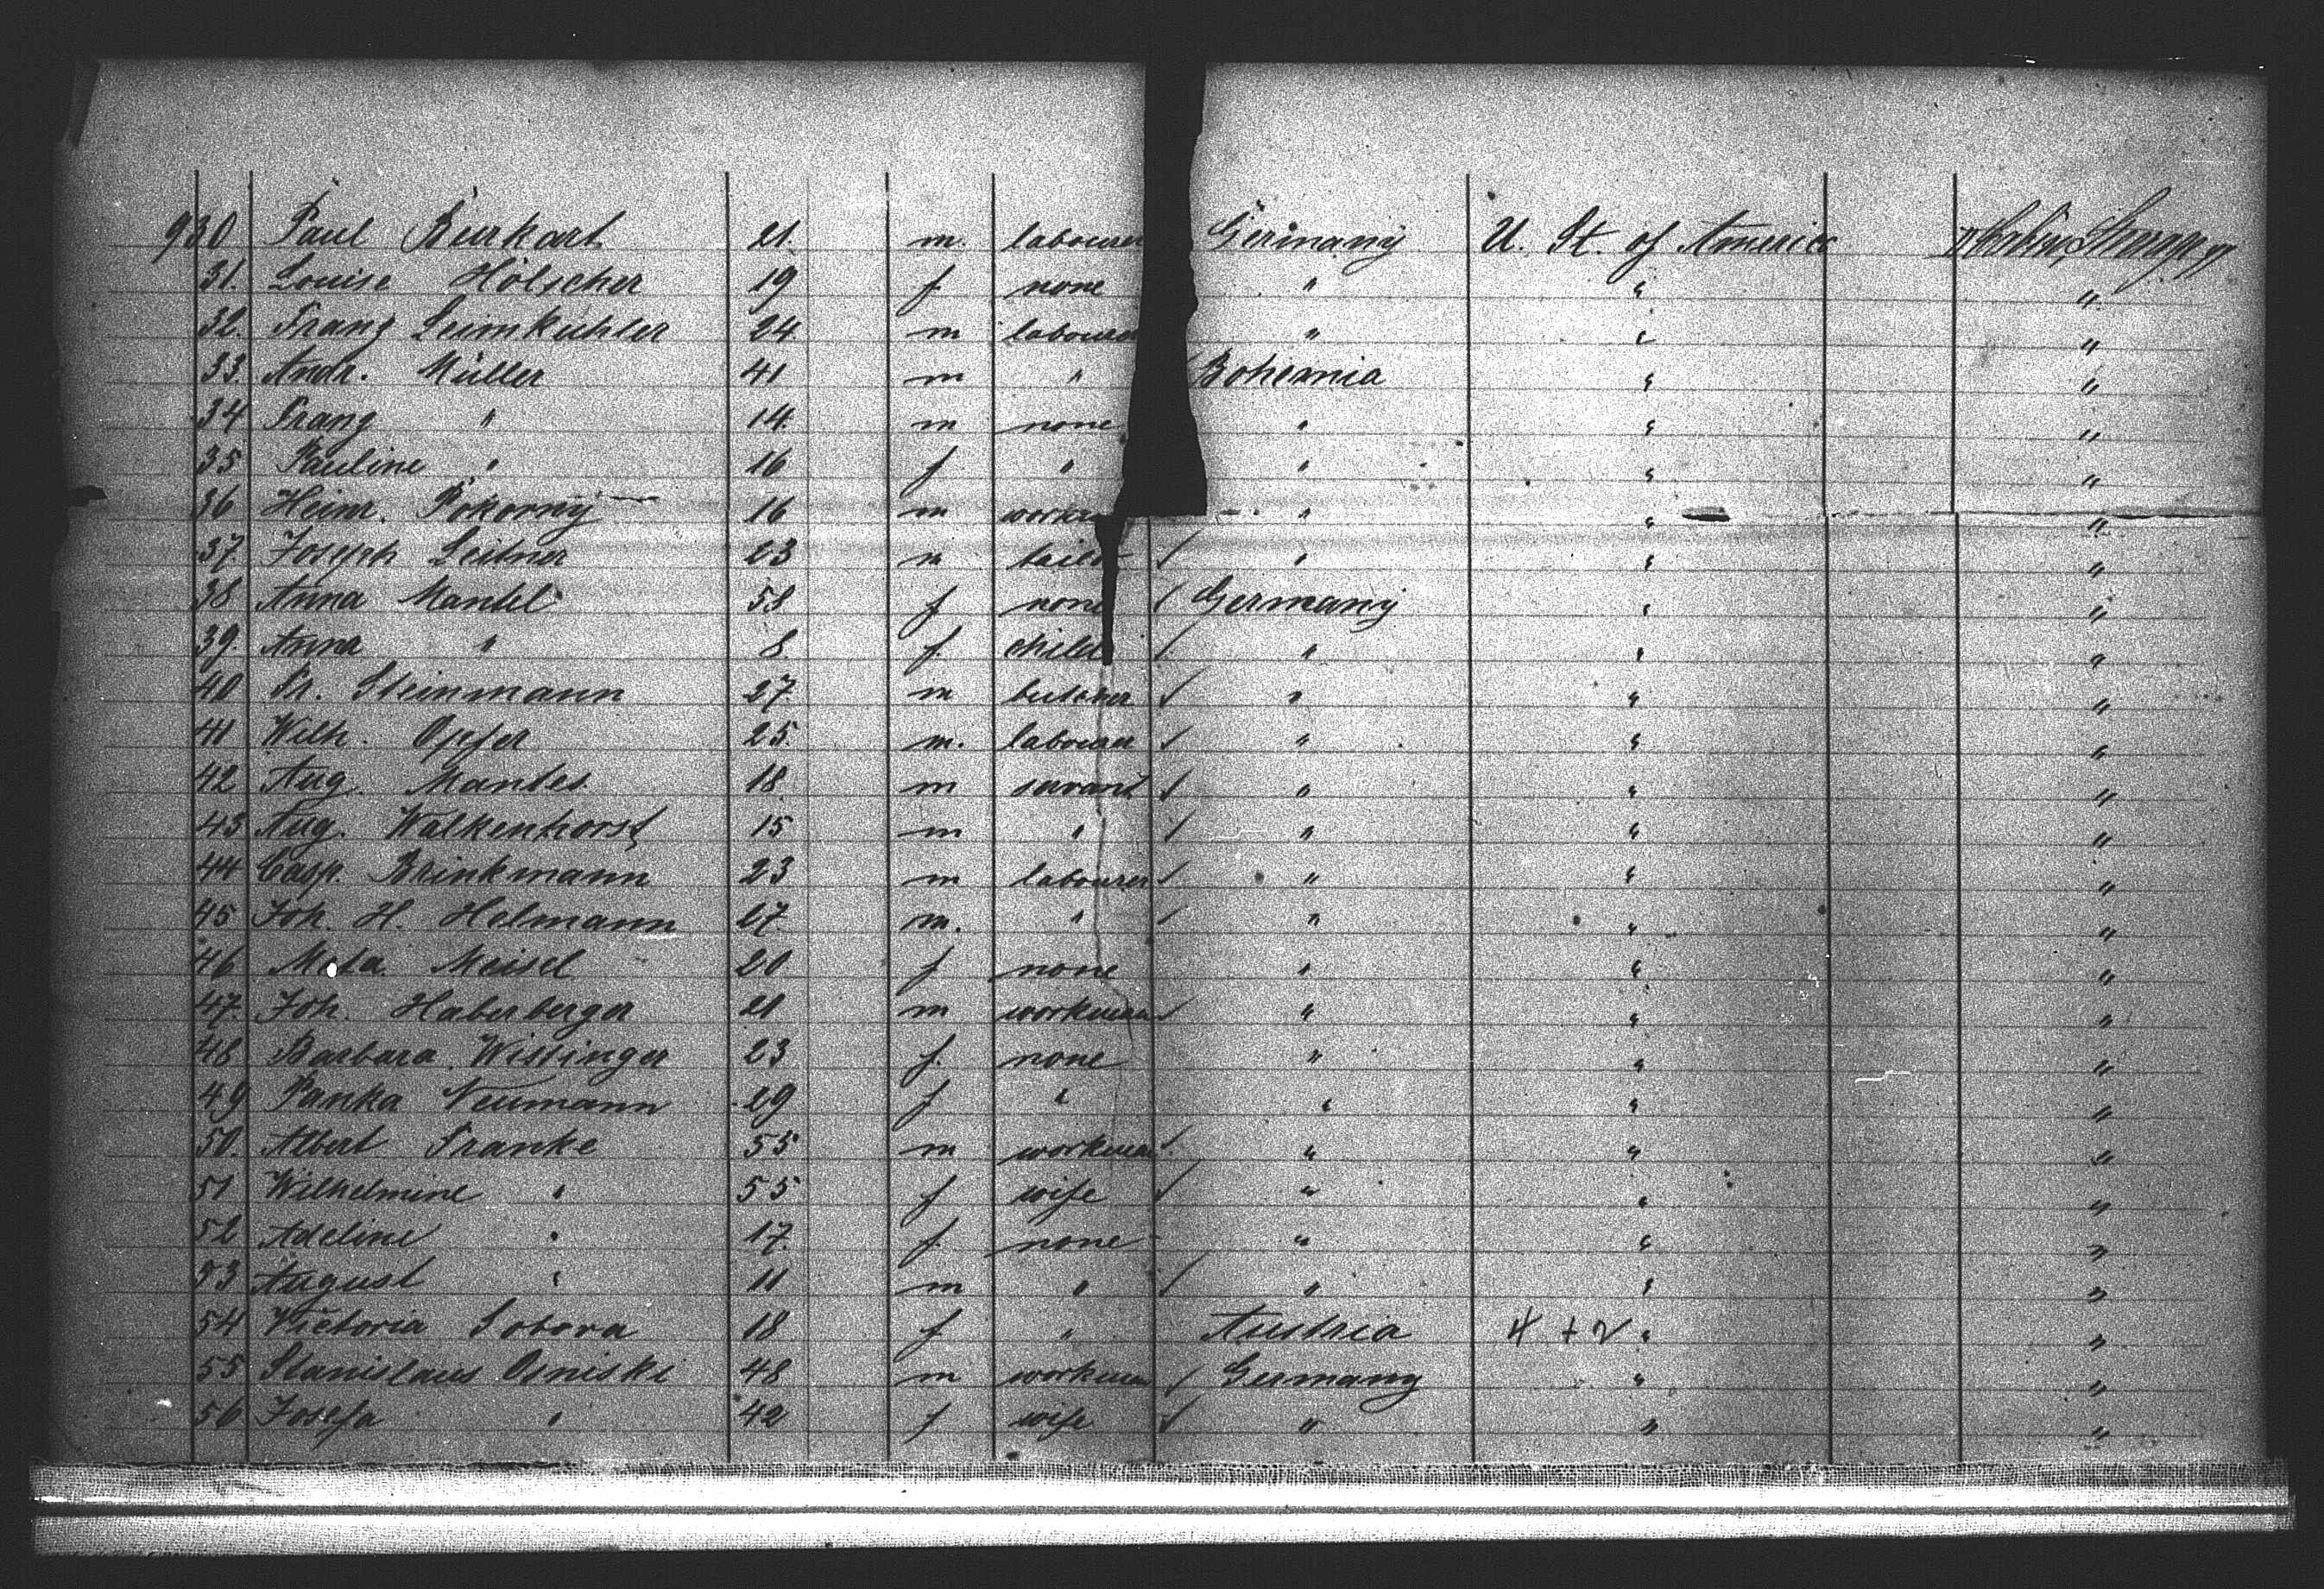 930 Paul Burkart 21. m. labourer Germany U. St. of America
31. Louise Hölscher 19 f none " "
32. Franz Leimkuhler 24. m labourer " " "
33. Andr. Müller 41 m " Bohemia " "
34 Franz " 14. m none " " "
35 Pauline " 16 f " " " "
36 Heinr. Pokorny 16 m " " "
37. Joseph Leitner 23 m tailor " " "
38 Anna Mantel 58 f none Germany " "
39. Anna " 8 f. child " " "
40 Fr. Steinmann 27. m butcher " " "
41 Wilh. Opfer 25. m. labourer " " "
42 Aug. Mantes 18 m " " "
43 Aug. Walkenhorst 15 m " " " "
44 Casp. Brinkmann 23 m labourer " " "
45 Joh. H. Helmann 27. m. " " " "
46 Meta Meisel 20 f none " " "
47. Joh. Haberberger 21 m workman " " "
48 Barbara Wissinger 23 f. none " " "
49 Panka Neumann 29 f " " " "
50. Albert Franke 55 m workman " " "
51 Wilhelmine " 55 f wife " " "
52 Adeline " 17. f. none " " "
53 August " 11 m " " " "
54 Victoria Sobora 18 f " Austria 4 + 2 " "
55 Stanislaus Osniski 48 m workman Germany " "
56 Josefa " 42 f wife " " "